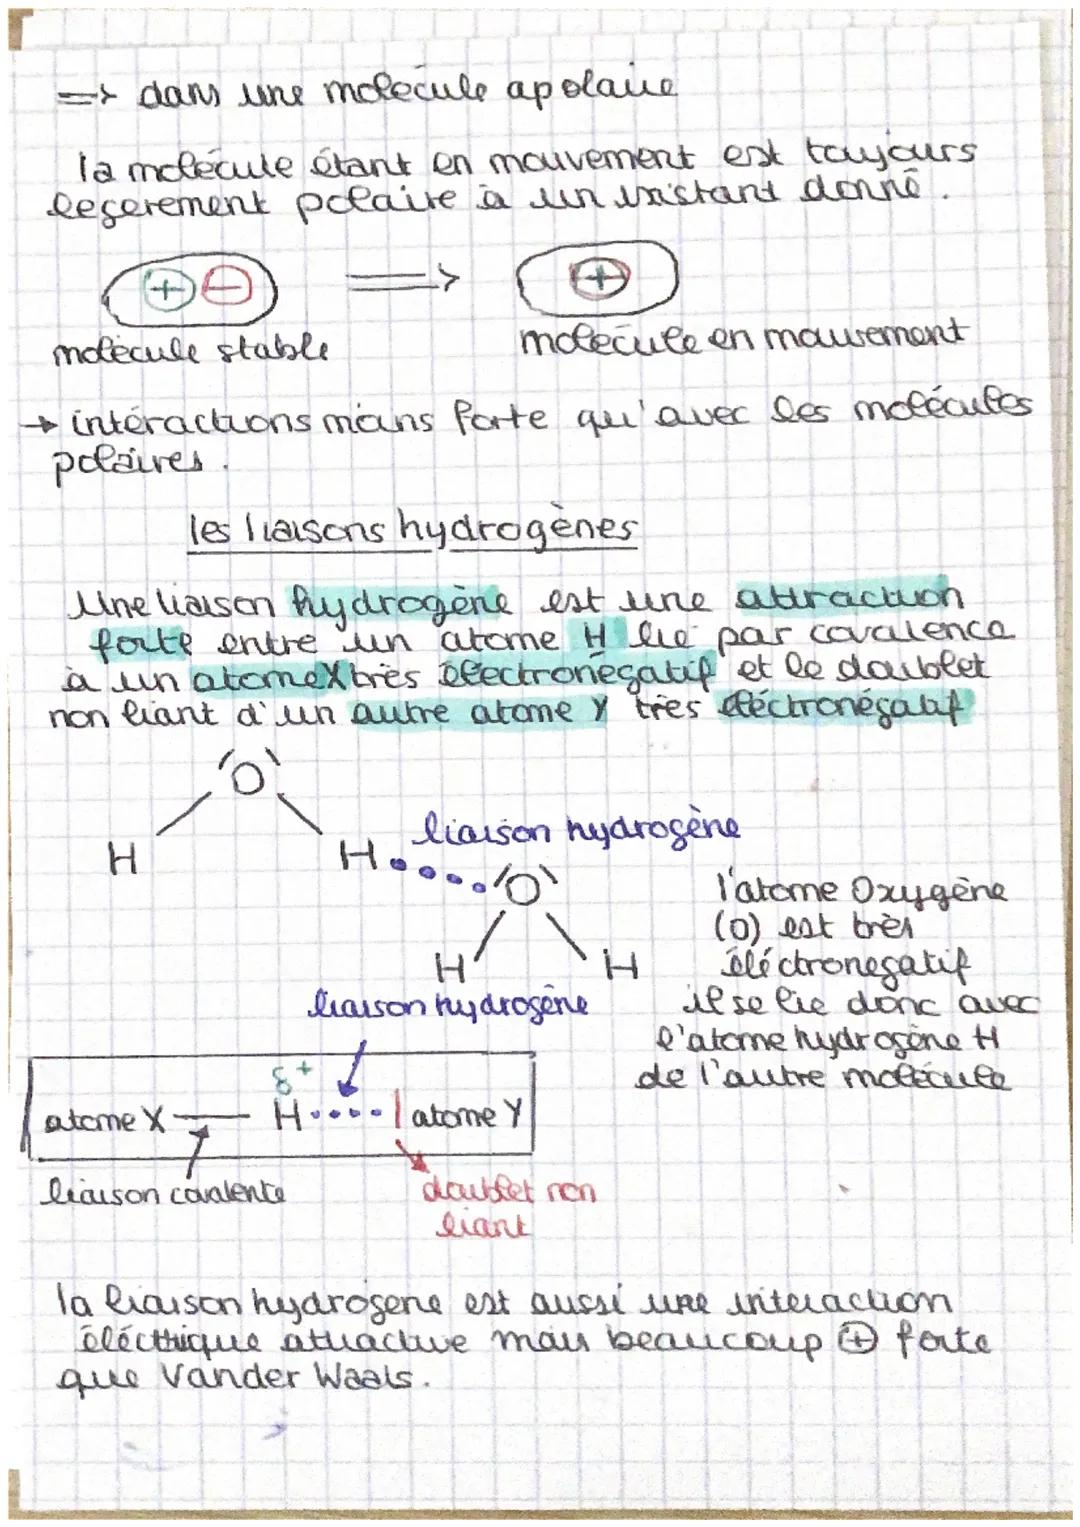 => dans une molécule apolaire
la molécule étant en mouvement est toujours
legerement polaire à un instant donné.
+ - => +
molécule stable
molécule en mouvement
→ intéractions moins forte qu'avec les molécules
polaires.
les liaisons hydrogènes
Une liaison hydrogène est une attraction
forte entre un atome H lié par covalence
à un atome X très électronégatif et le doublet
non liant d'un autre atome Y très éléctronégatif
O
liaison hydrogène
H H
O
l'atome Oxygène
(O) est très
éléctronegatif
H H
il se lie donc avec
l'atome hydrogène H
de l'autre molécule
liaison hydrogène
δ+
atome X — H •••• | atome Y
liaison covalente
doublet non
liant
la liaison hydrogene est aussi une interaction
éléctrique attractive mais beaucoup ⊕ forte
que Vander Waals.